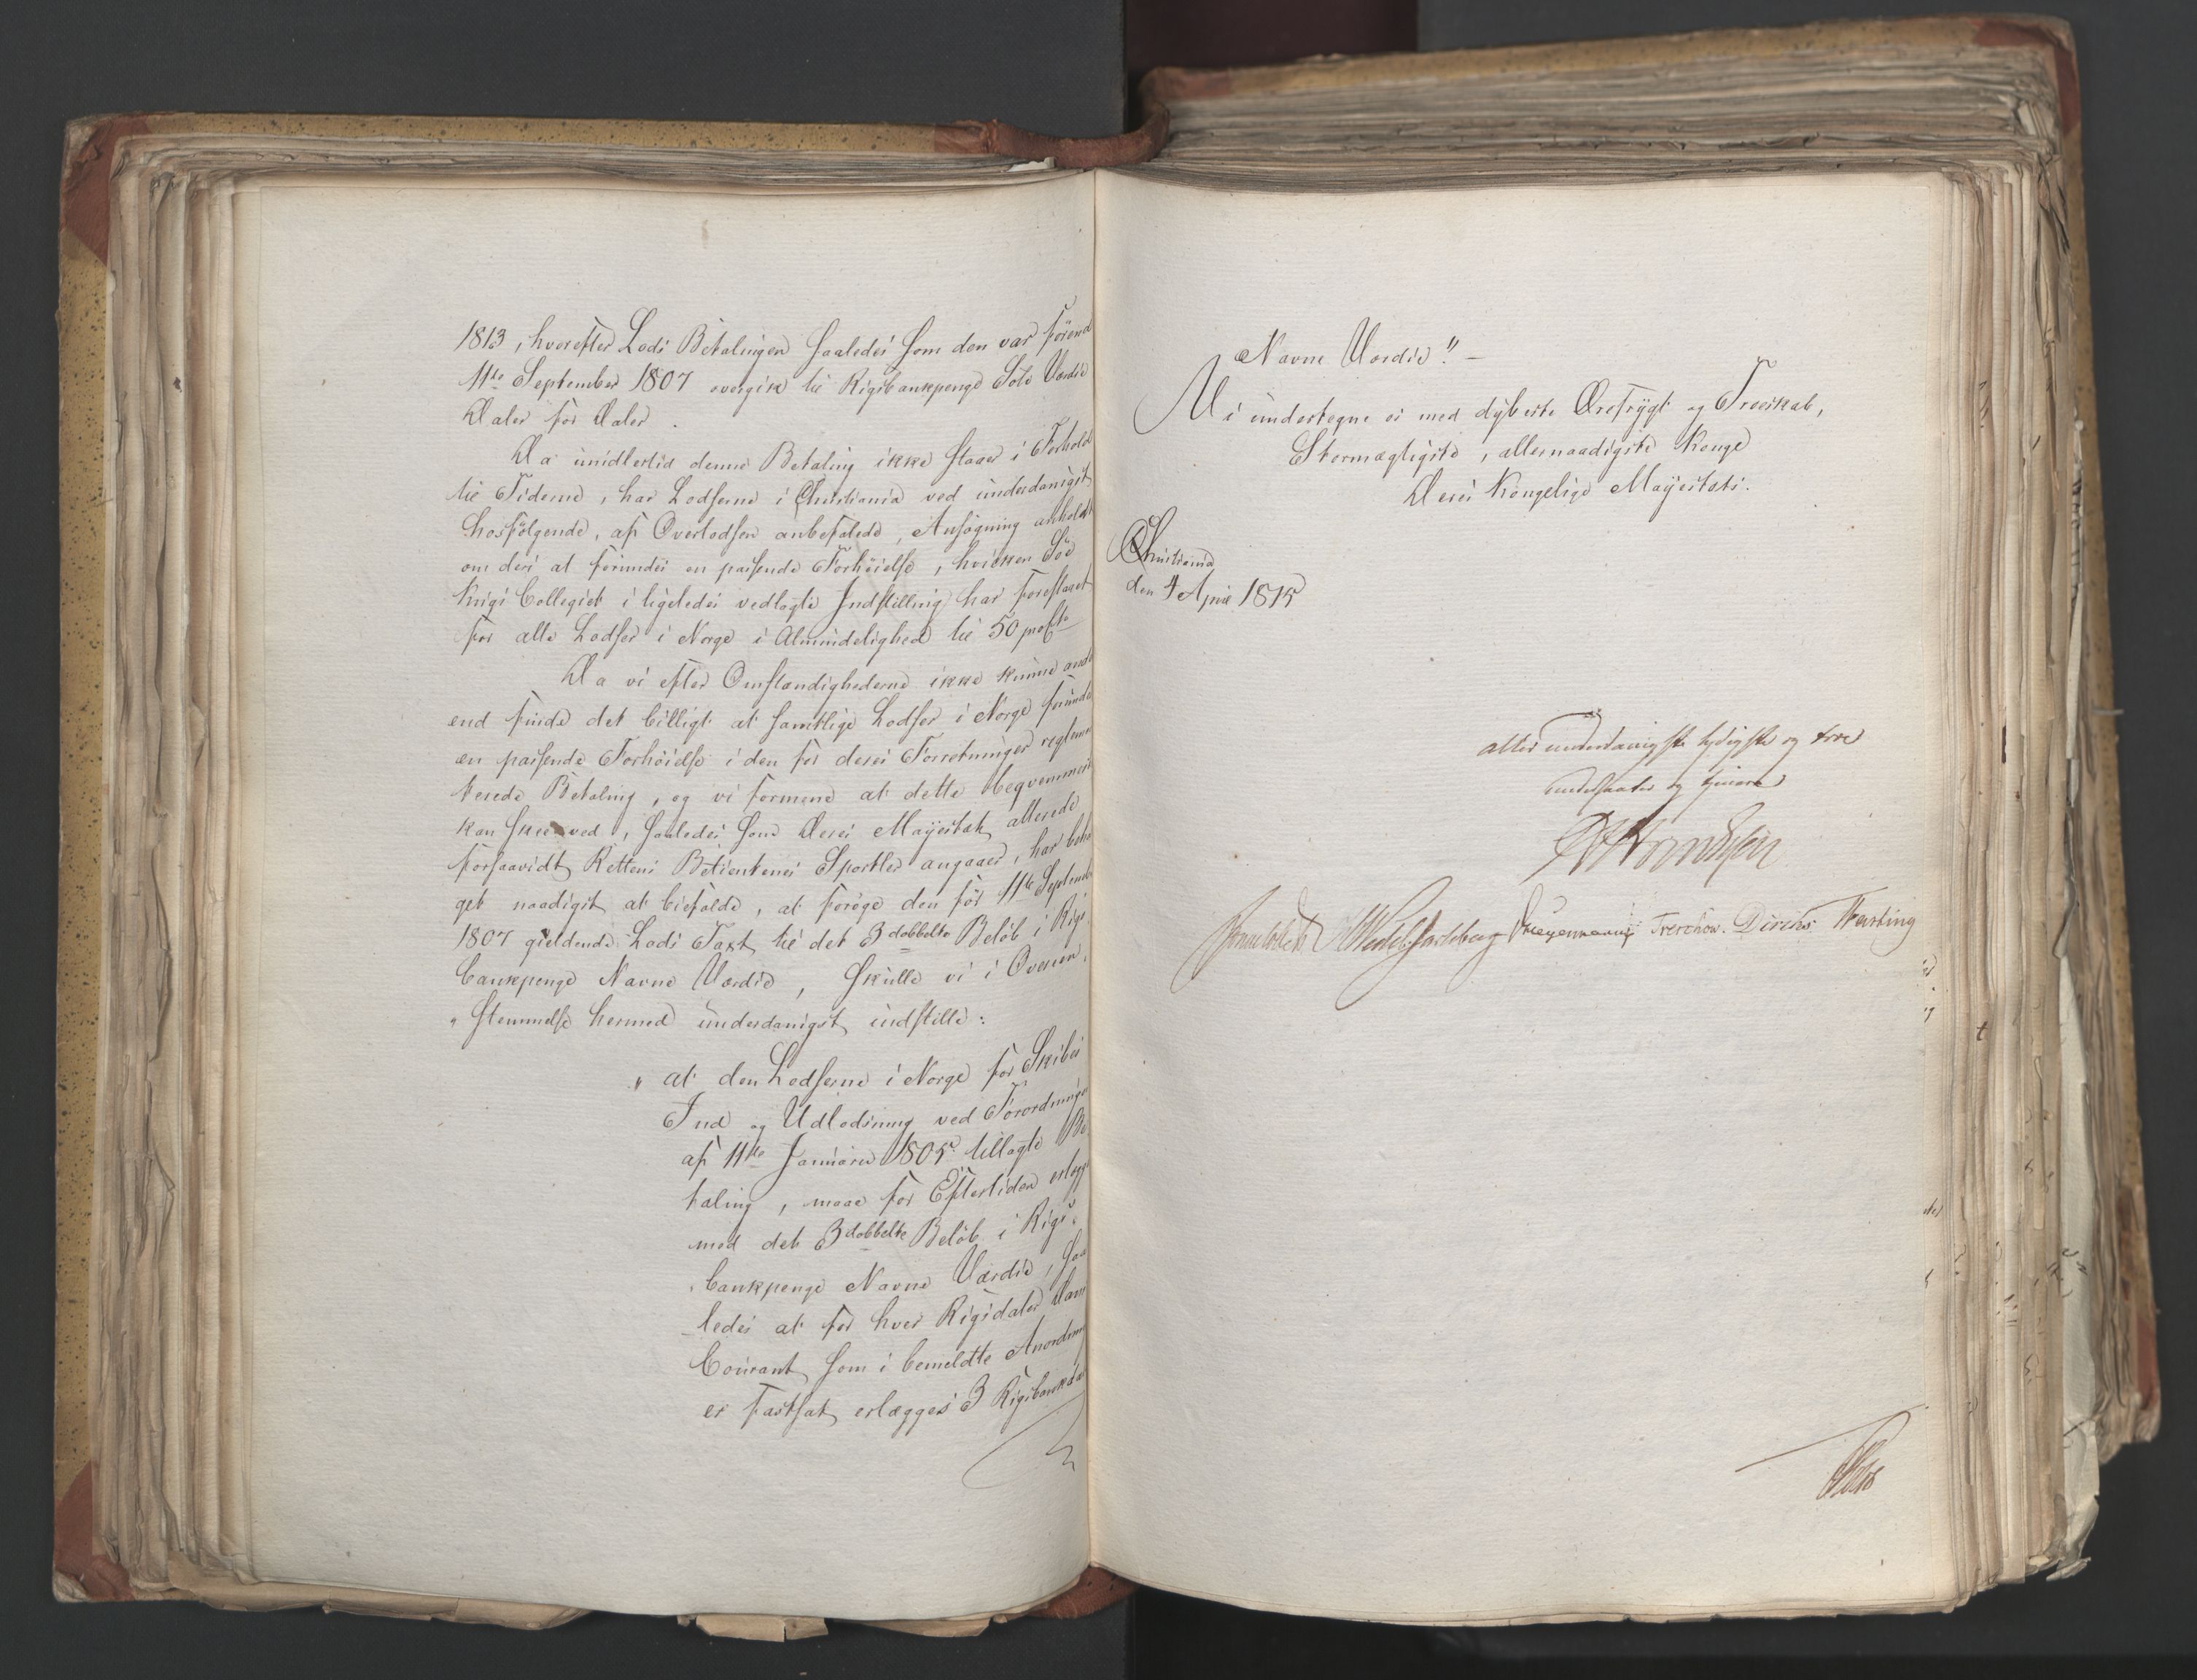 1813, hvorefter Lods Betalingen saaledes som den var förend
11te September 1807 overgik til Rigsbankpenge Sölv Værdie
Daler for Daler.
Da imidlertid denne Betaling ikke staaer i Forhold
til Tiderne, har Lodserne i Christiania ved underdanigst
hosfölgende, af Overlodsen anbefalede, Ansögning anholdt
om deri at forundes en passende Forhöielse, hvilken Söe
Krigs Collegiet i ligeledes vedlagte Indstilling har foreslaaet
for alle Lodser i Norge i Almindelighed til 50 procto
Da vi efter Omstændighederne ikke kunne andet
end finde det billigt at samtlige Lodser i Norge forundes
en passende Forhöielse i den for deres Forretninger reglemen
terede Betaling, og vi formene at dette beqvemmest
kan skee ved, saaledes som Deres Mayestæt allerede
forsaavidt Rettens Betienteres Sportler angaaer, har beha
get naadigst at bifalde, at foröge den för 11te September
1807 gieldende Lods Taxt til det 3dobbelte Belöb i Rigs
bankpenge Navne Værdie, skulle vi i Overeen
stemmelse hermed underdanigst indstille:
"at den Lodserne i Norge for Skibes
Ind og Udlodsning ved Forordningen
af 11te Januarii 1805 tillagte Be
taling, maae for Eftertiden erlægges
med det 3dobbelte Belöb i Rigs
bankpenge Navne Værdie, saa
ledes at for hver Rigsdaler Dansk
Courant som i bemeldte Anordning
er fastsat, erlægges 3 Rigsbankdaler
Navne Værdie"
Vi undertegne os med dÿbeste Ærefrÿgt og Troeskab,
Stormægtigste, allernaadigste Konge
Deres Kongelige Mayestæts.
Christiania
den 4 April 1815
allerunderdanigste lydigste og troe
undersaatter og tjenere
Sommerhielm HWedel Jarlsberg Treschow. Diriks Fasting